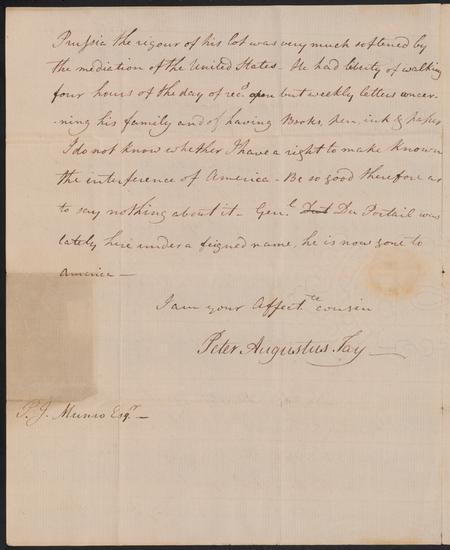 Prussia the rigour of his lot was very much softened by
the mediation of the United States – He had liberty of walking
four hours of the day of recg open but weekly letters concer-
-ning his family and of having Books, pen, ink & paper
I do not know whether I have a right to make known
the interference of America – Be so good therefore as
to say nothing about it – Genl. Du Portail was
lately here under a feigned name, he is now gone to
America –
I am your Affectte cousin
Peter Augustus Jay –
P. J. Munro Esqr –